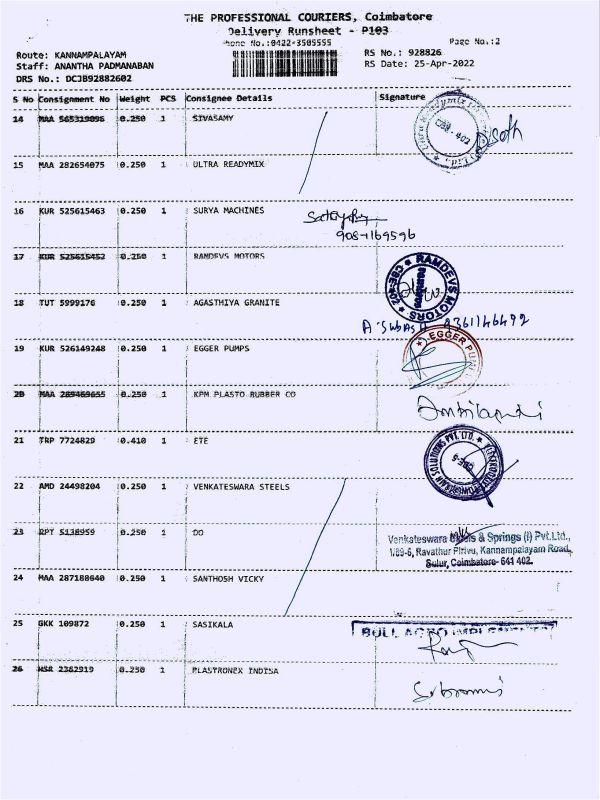 THE PROFESSIONAL COURIERS, Coimbatore
Delivery Runsheet - P103
Phone No.:0422-3505555
Page No.:2
Route: KANNAMPALAYAM
RS No.: 928826
Staff: ANANTHA PADMANABAN
RS Date: 25-Apr-2022
DRS No.: DCJB92882602
S No Consignment No Weight PCS Consignee Details Signature
14 MAA 565319096 0.250 1 SIVASAMY
15 MAA 282654075 0.250 1 ULTRA READYMIX
16 KUR 525615463 0.250 1 SURYA MACHINES
17 KUR 525615452 0.250 1 RAMDEVS MOTORS
RAMDEVS MOTORS
18 TUT 5999176 0.250 1 AGASTHIYA GRANITE
19 KUR 526149248 0.250 1 EGGER PUMPS
EGGER
20 MAA 289469655 0.250 1 KPM PLASTO RUBBER CO
21 TRP 7724829 0.410 1 ETE
22 AMD 24498204 0.250 1 VENKATESWARA STEELS
23 RPT 5138959 0.250 1 DO
Venkateswara Steels & Springs (I) Pvt.Ltd.,
1/89-6, Ravathur Pirivu, Kannampalayam Road,
Sulur, Coimbatore- 641 402.
24 MAA 287180640 0.250 1 SANTHOSH VICKY
25 GKK 109872 0.250 1 SASIKALA
BULL AGRO IMPLEMENTS
26 MSR 2362919 0.250 1 PLASTRONEX INDISA